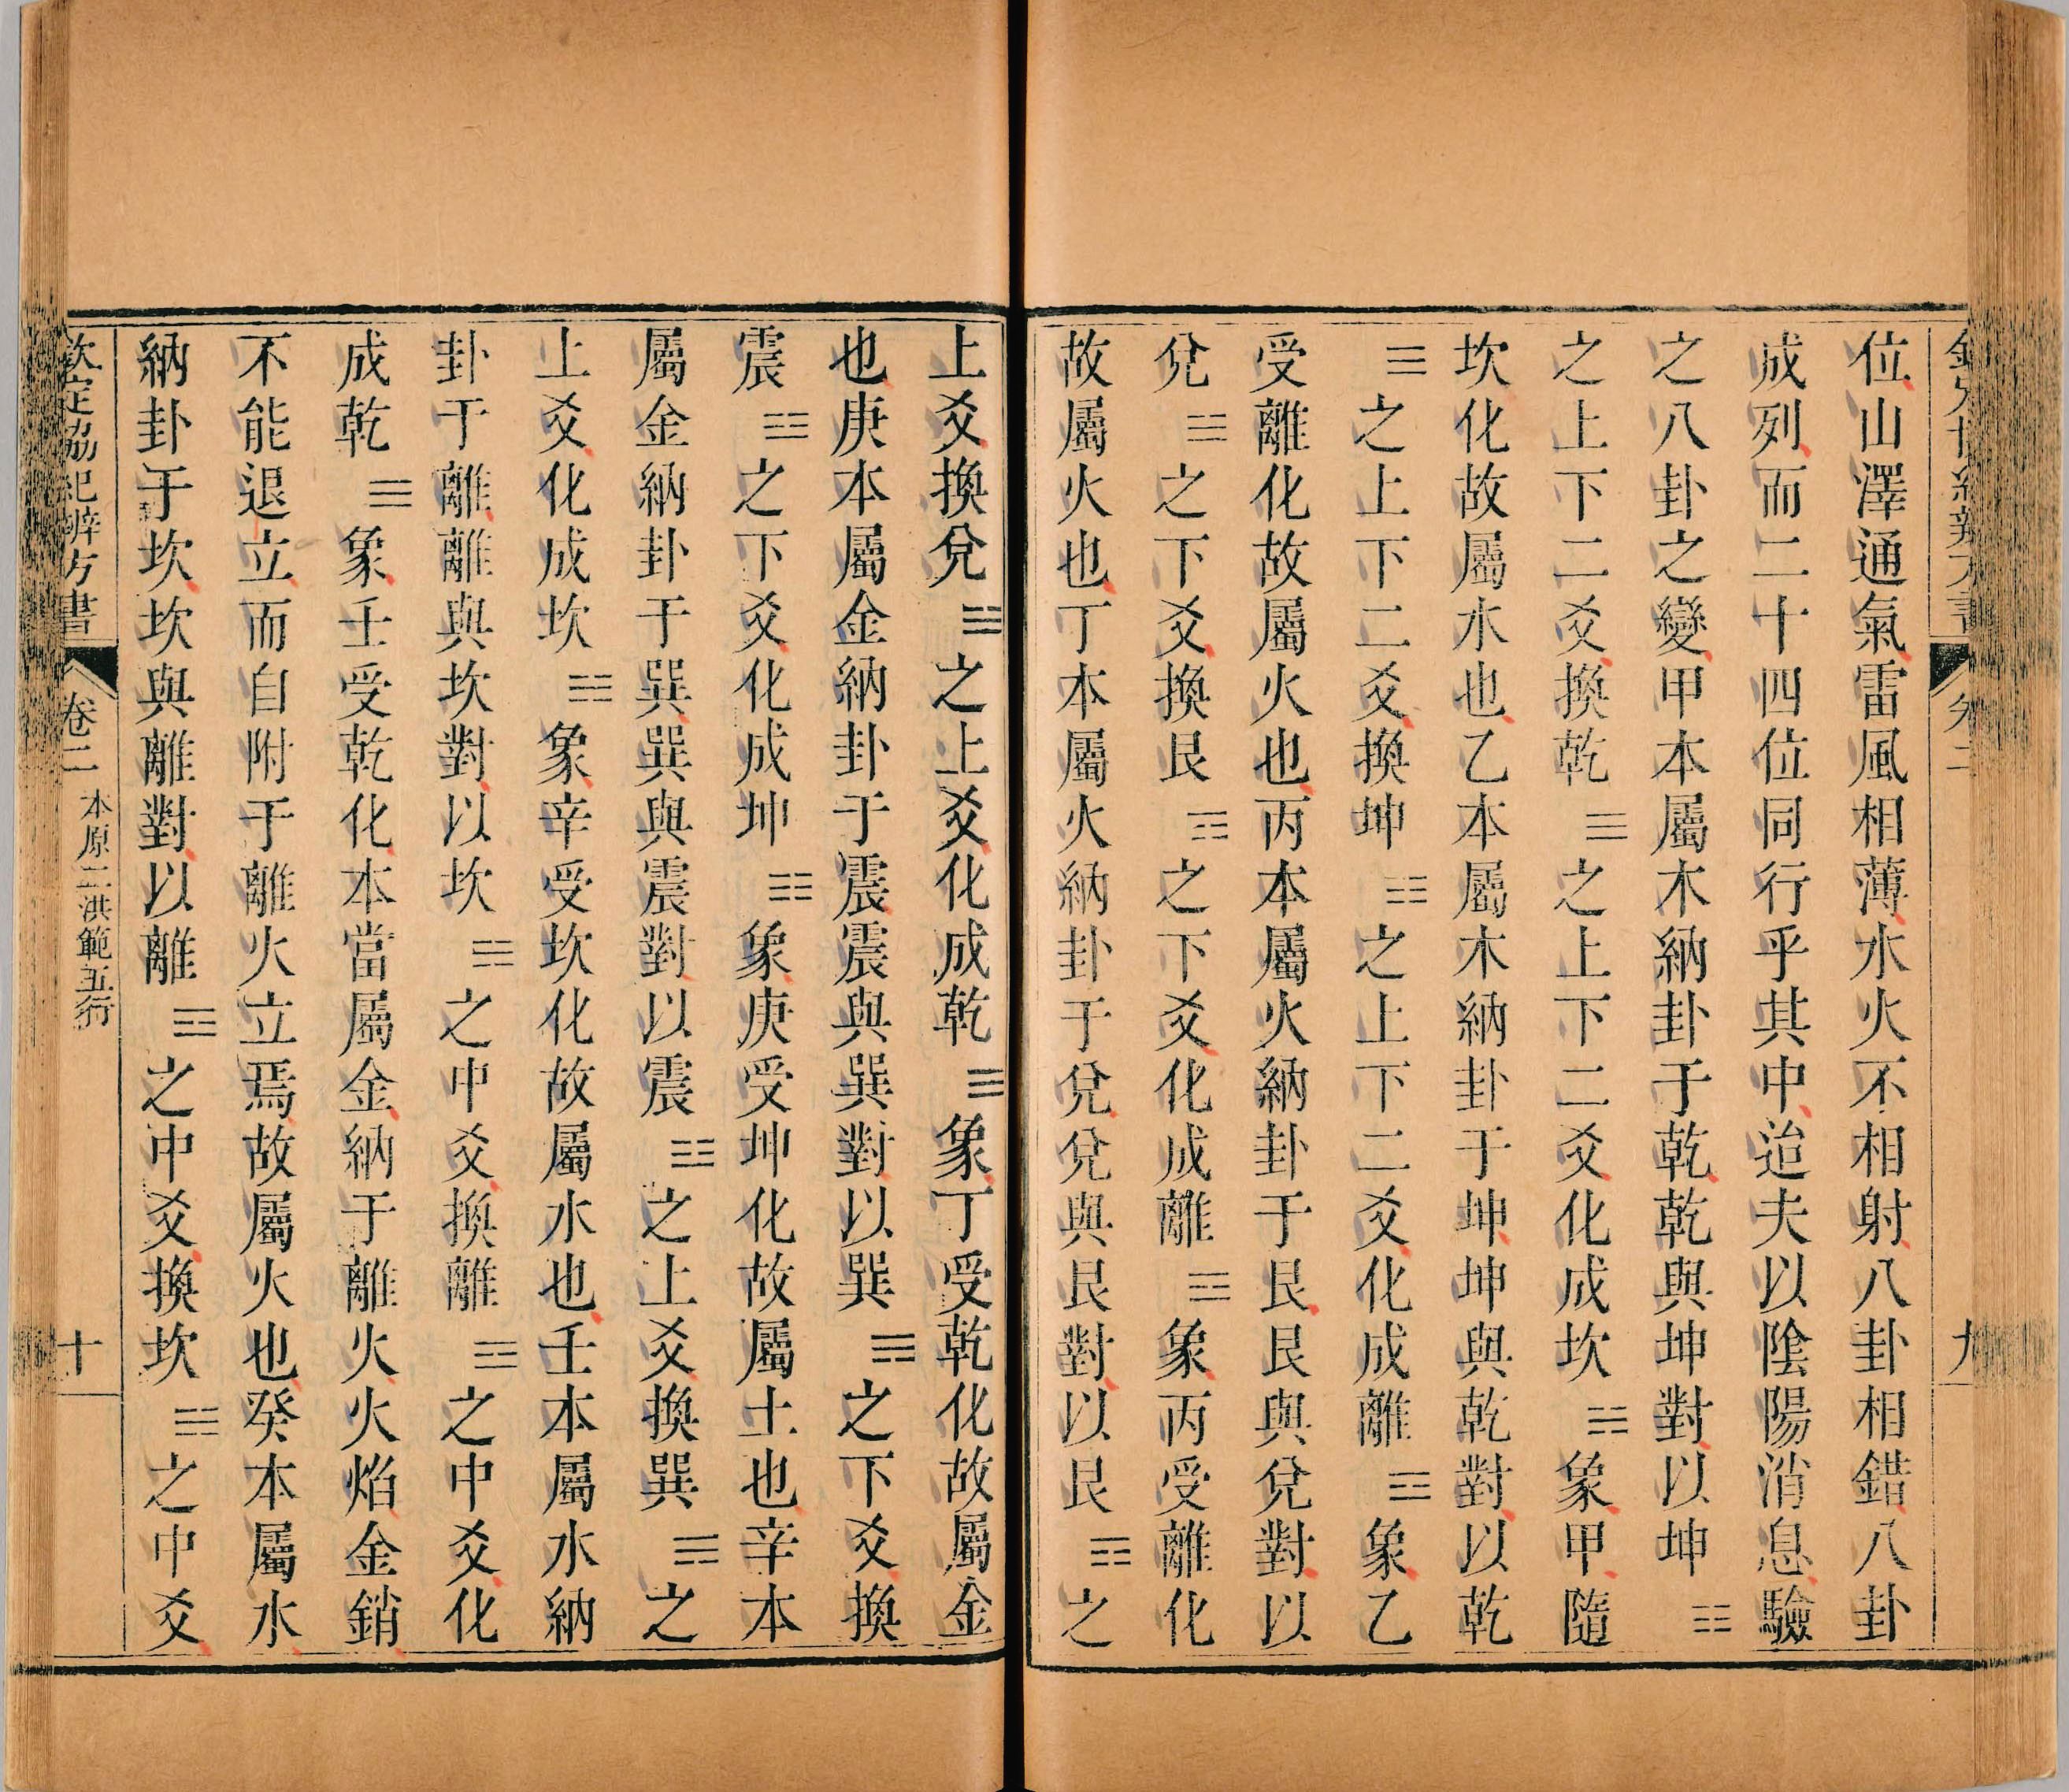 卷二
九
位山澤通氣雷風相薄水火不相射八卦相錯八卦
成列而二十四位同行乎其中迨夫以陰陽消息驗
之八卦之變甲本屬木納卦于乾乾與坤對以坤☷
之上下二爻換乾☰之上下二爻化成坎☵象甲隨
坎化故屬水也乙本屬木納卦于坤坤與乾對以乾
☰之上下二爻換坤☷之上下二爻化成離☲象乙
受離化故屬火也丙本屬火納卦于艮艮與兌對以
兌☱之下爻換艮☶之下爻化成離☲象丙受離化
故屬火也丁本屬火納卦于兌兌與艮對以艮☶之
上爻換兌☱之上爻化成乾☰象丁受乾化故屬金
也庚本屬金納卦于震震與巽對以巽☴之下爻換
震☳之下爻化成坤☷象庚受坤化故屬土也辛本
屬金納卦于巽巽與震對以震☳之上爻換巽☴之
上爻化成坎☵象辛受坎化故屬水也壬本屬水納
卦于離離與坎對以坎☵之中爻換離☲之中爻化
成乾☰象壬受乾化本當屬金納于離火火焰金銷
不能退立而自附于離火立焉故屬火也癸本屬水
納卦于坎坎與離對以離☲之中爻換坎☵之中爻
欽定協紀辨方書
卷二
本原二洪範五行
十